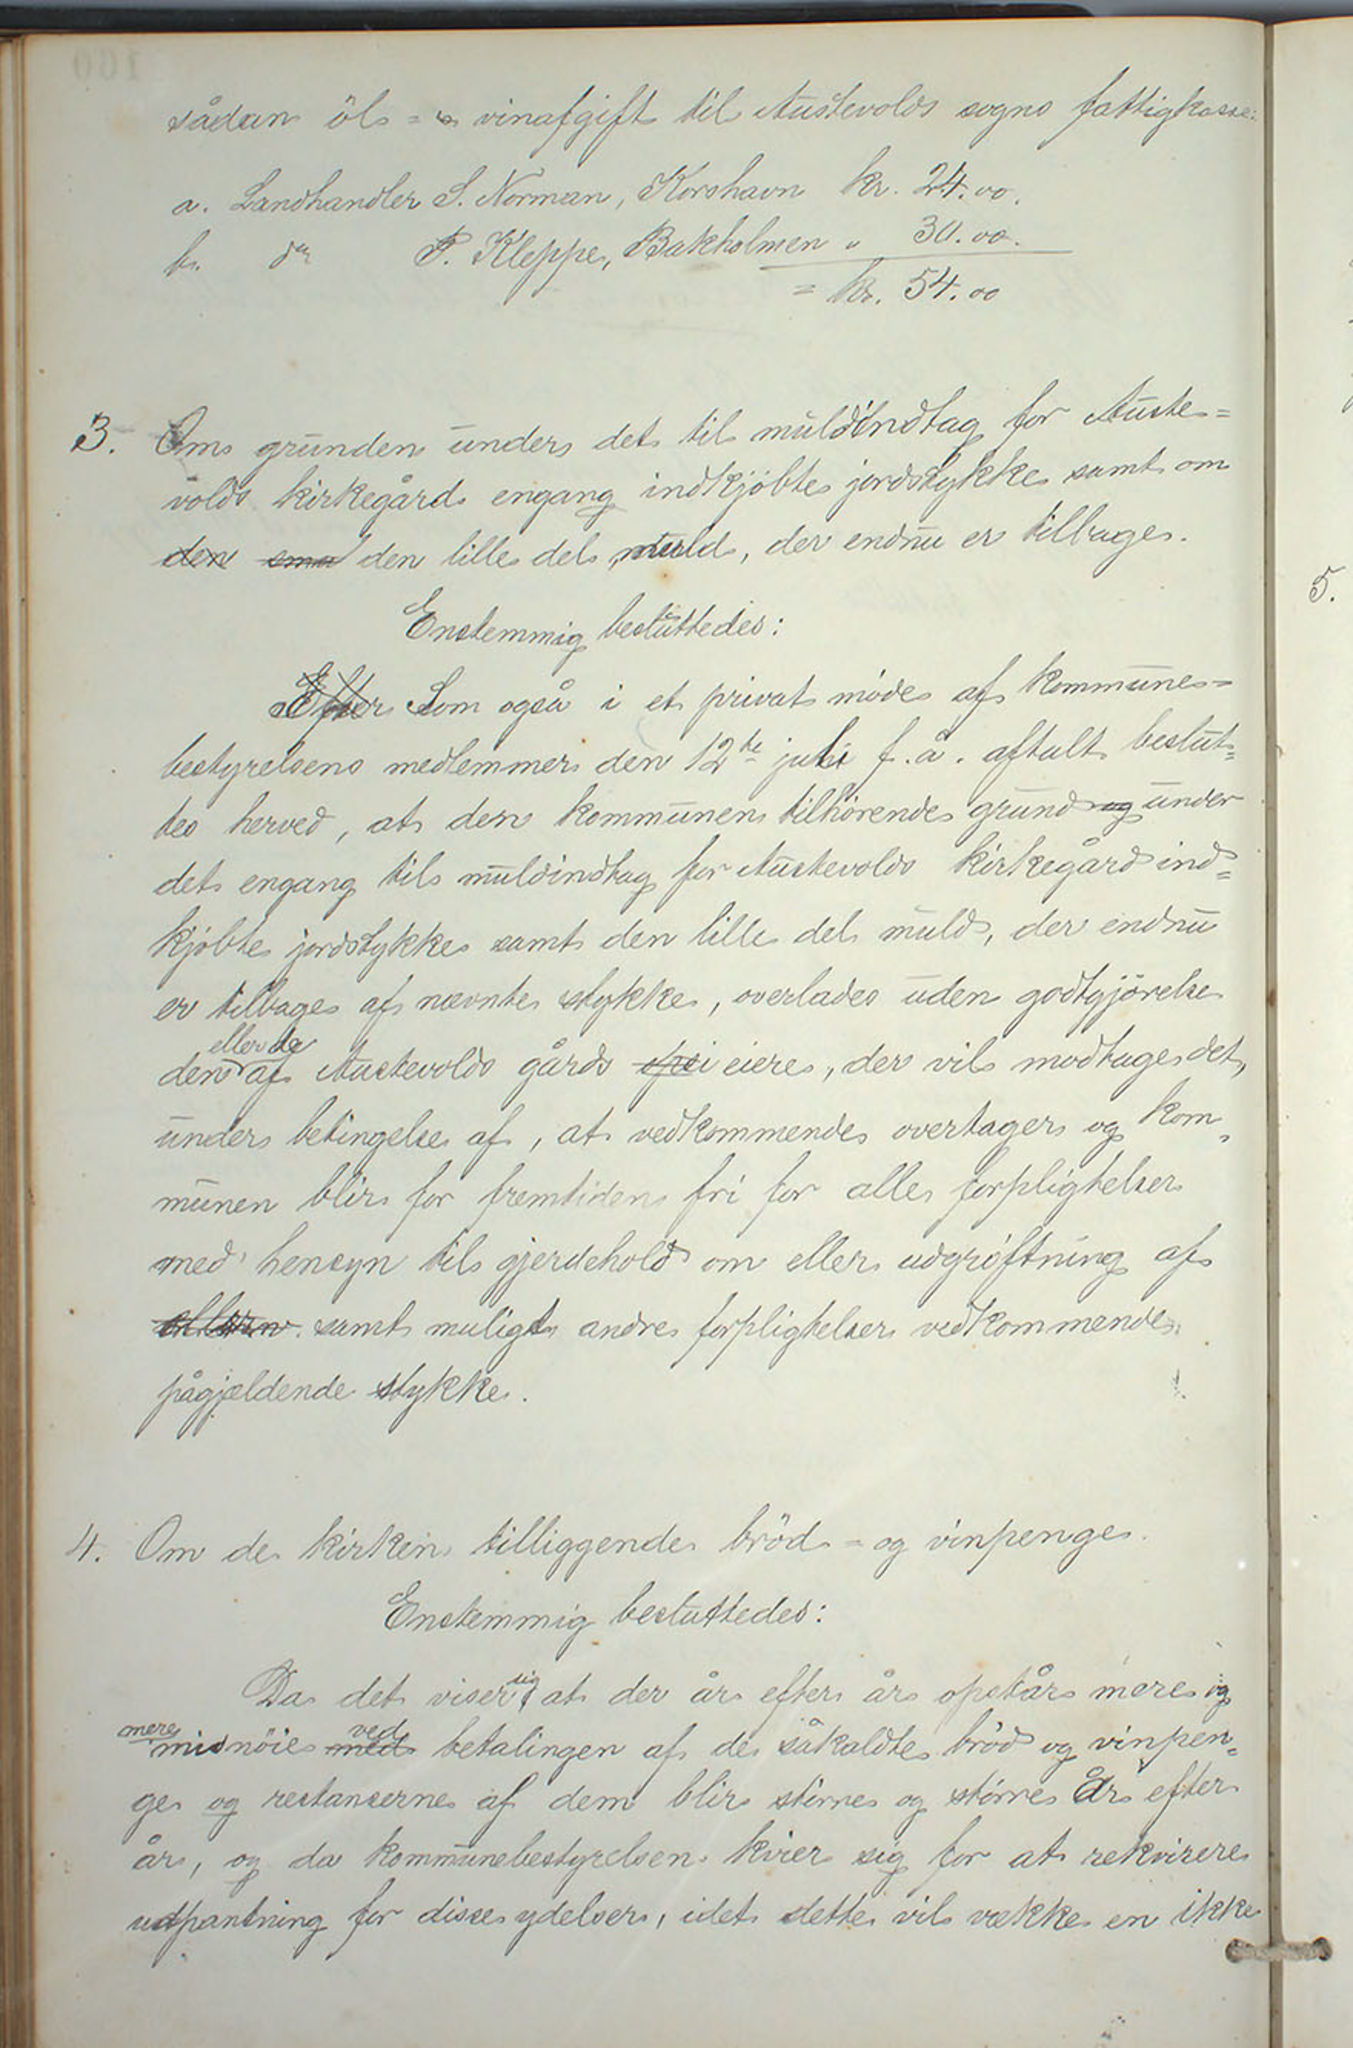 sådan öl= & vinafgift til Austevolds sogns fattigkasse:
a. Landhandler S. Norman, Korshavn kr. 24.00.
b. do P. Kleppe, Bakholmen " 30.00.
= kr. 54.00
3. Om grunden under det til muldindtag for Auste=
volds kirkegård engang indkjöbte jordstykke samt om
den den lille del muld, der endnu er tilbage.
Enstemmig besluttedes:
Efter Som også i et privat möde af kommune=
bestyrelsens medlemmer den 12te juli f.å. aftalt beslut=
tes herved, at den kommunen tilhörende grund og under
det engang til muldindtag for Austevolds kirkegård ind=
kjöbte jordstykke samt den lille del muld, der endnu
er tilbage af nævnte stykke, overlades uden godtgjörelse
den eller de af Austevolds gårds eiere, der vil modtage det,
under betingelse af, at vedkommende overtager og kom=
munen blir for fremtiden fri for alle forpligtelser
med hensyn til gjerdehold om eller udgröftning af
samt muligt andre forpligtelser vedkommende
pågjældende stykke.
4. Om de kirken tilliggende bröd= og vinpenge.
Enstemmig besluttedes:
Da det viser sig at der år efter år opstår mere og
mere misnöie med ved betalingen af de såkaldte bröd og vinpen=
ge og restanserne af dem blir större og större År efter
år, og da kommunebestyrelsen kvier sig for at rekvirere
udpantning for disse ydelser, idet dette vil vække en ikke
5.